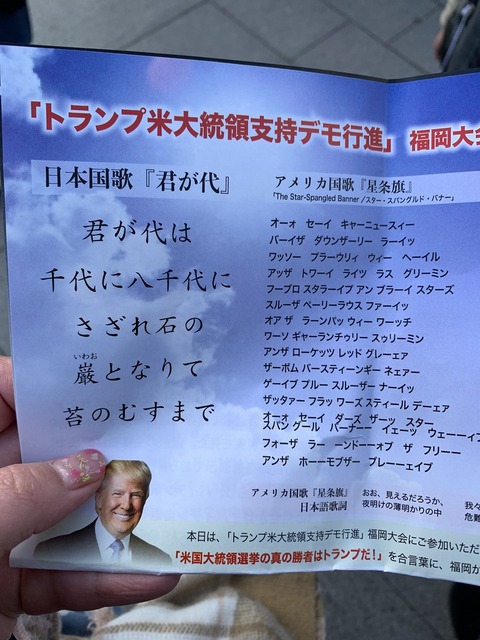 「トランプ米大統領支持デモ行進」 福岡大会
日本国歌『君が代』
君が代は
千代に八千代に
さざれ石の
いわお
巌となりて
苔のむすまで
アメリカ国歌『星条旗』
「The Star-Spangled Banner /スター・スパングルド・バナー」
オーォ セーイ キャーニュースィー
バーイザ ダウンザーリー ラーイッ
ワッソー プラーウリィ ウィー ヘーイル
アッザ トワーイ ライツ ラス グリーミン
フーブロ スタラーイプ アン ブラーイ スターズ
スルーザ ペーリーラウス ファーイッ
オア ザ ラーンパッ ウィー ワーッチ
ワーソ ギャーランチゥリー スゥリーミン
アンザ ローケッツ レッド グレーェア
ザーボム バースティーンギー ネェアー
ゲーイブ プルー スルーザー ナーイッ
ザッタァー フラッ ワーズ スティール デーェア
オーォ セーイ ダーズ ザーッ スター
スパングール バーナー イェーツ ウェーーイブ
フォーザ ラー ーンドーーオブ ザ フリーー
アンザ ホーーモブザー ブレーーェイブ
アメリカ国歌『星条旗』
日本語歌詞
おお、見えるだろうか、
夜明けの薄明かりの中
我々
危難
本日は、「トランプ米大統領支持デモ行進」福岡大会にご参加いただ
「米国大統領選挙の真の勝者はトランプだ！」を合言葉に、福岡か